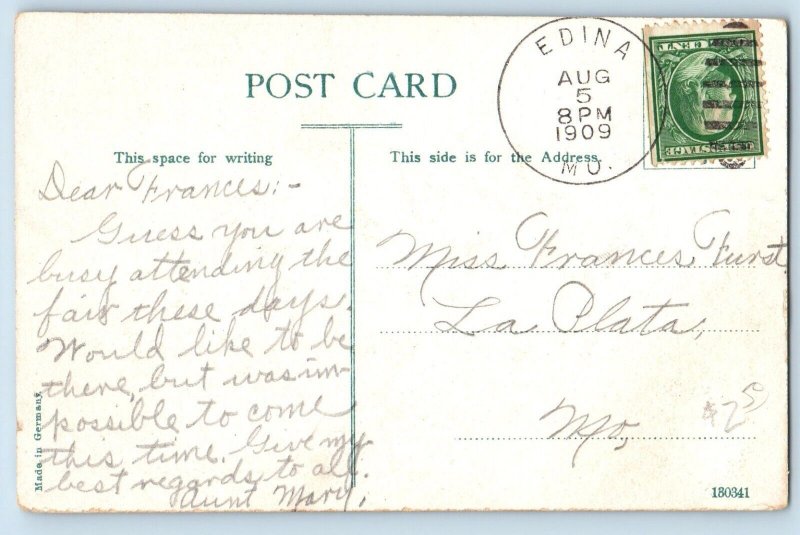 POST CARD
EDINA
AUG
5
8 PM
1909
MO.
This space for writing
This side is for the Address.
Dear Frances:-
Guess you are
busy attending the
fair these days.
Would like to be
there, but was im-
possible to come
this time. Give my
best regards to all.
Aunt Mary.
Miss Frances Furst
La Plata,
Mo,
Made in Germany
180341